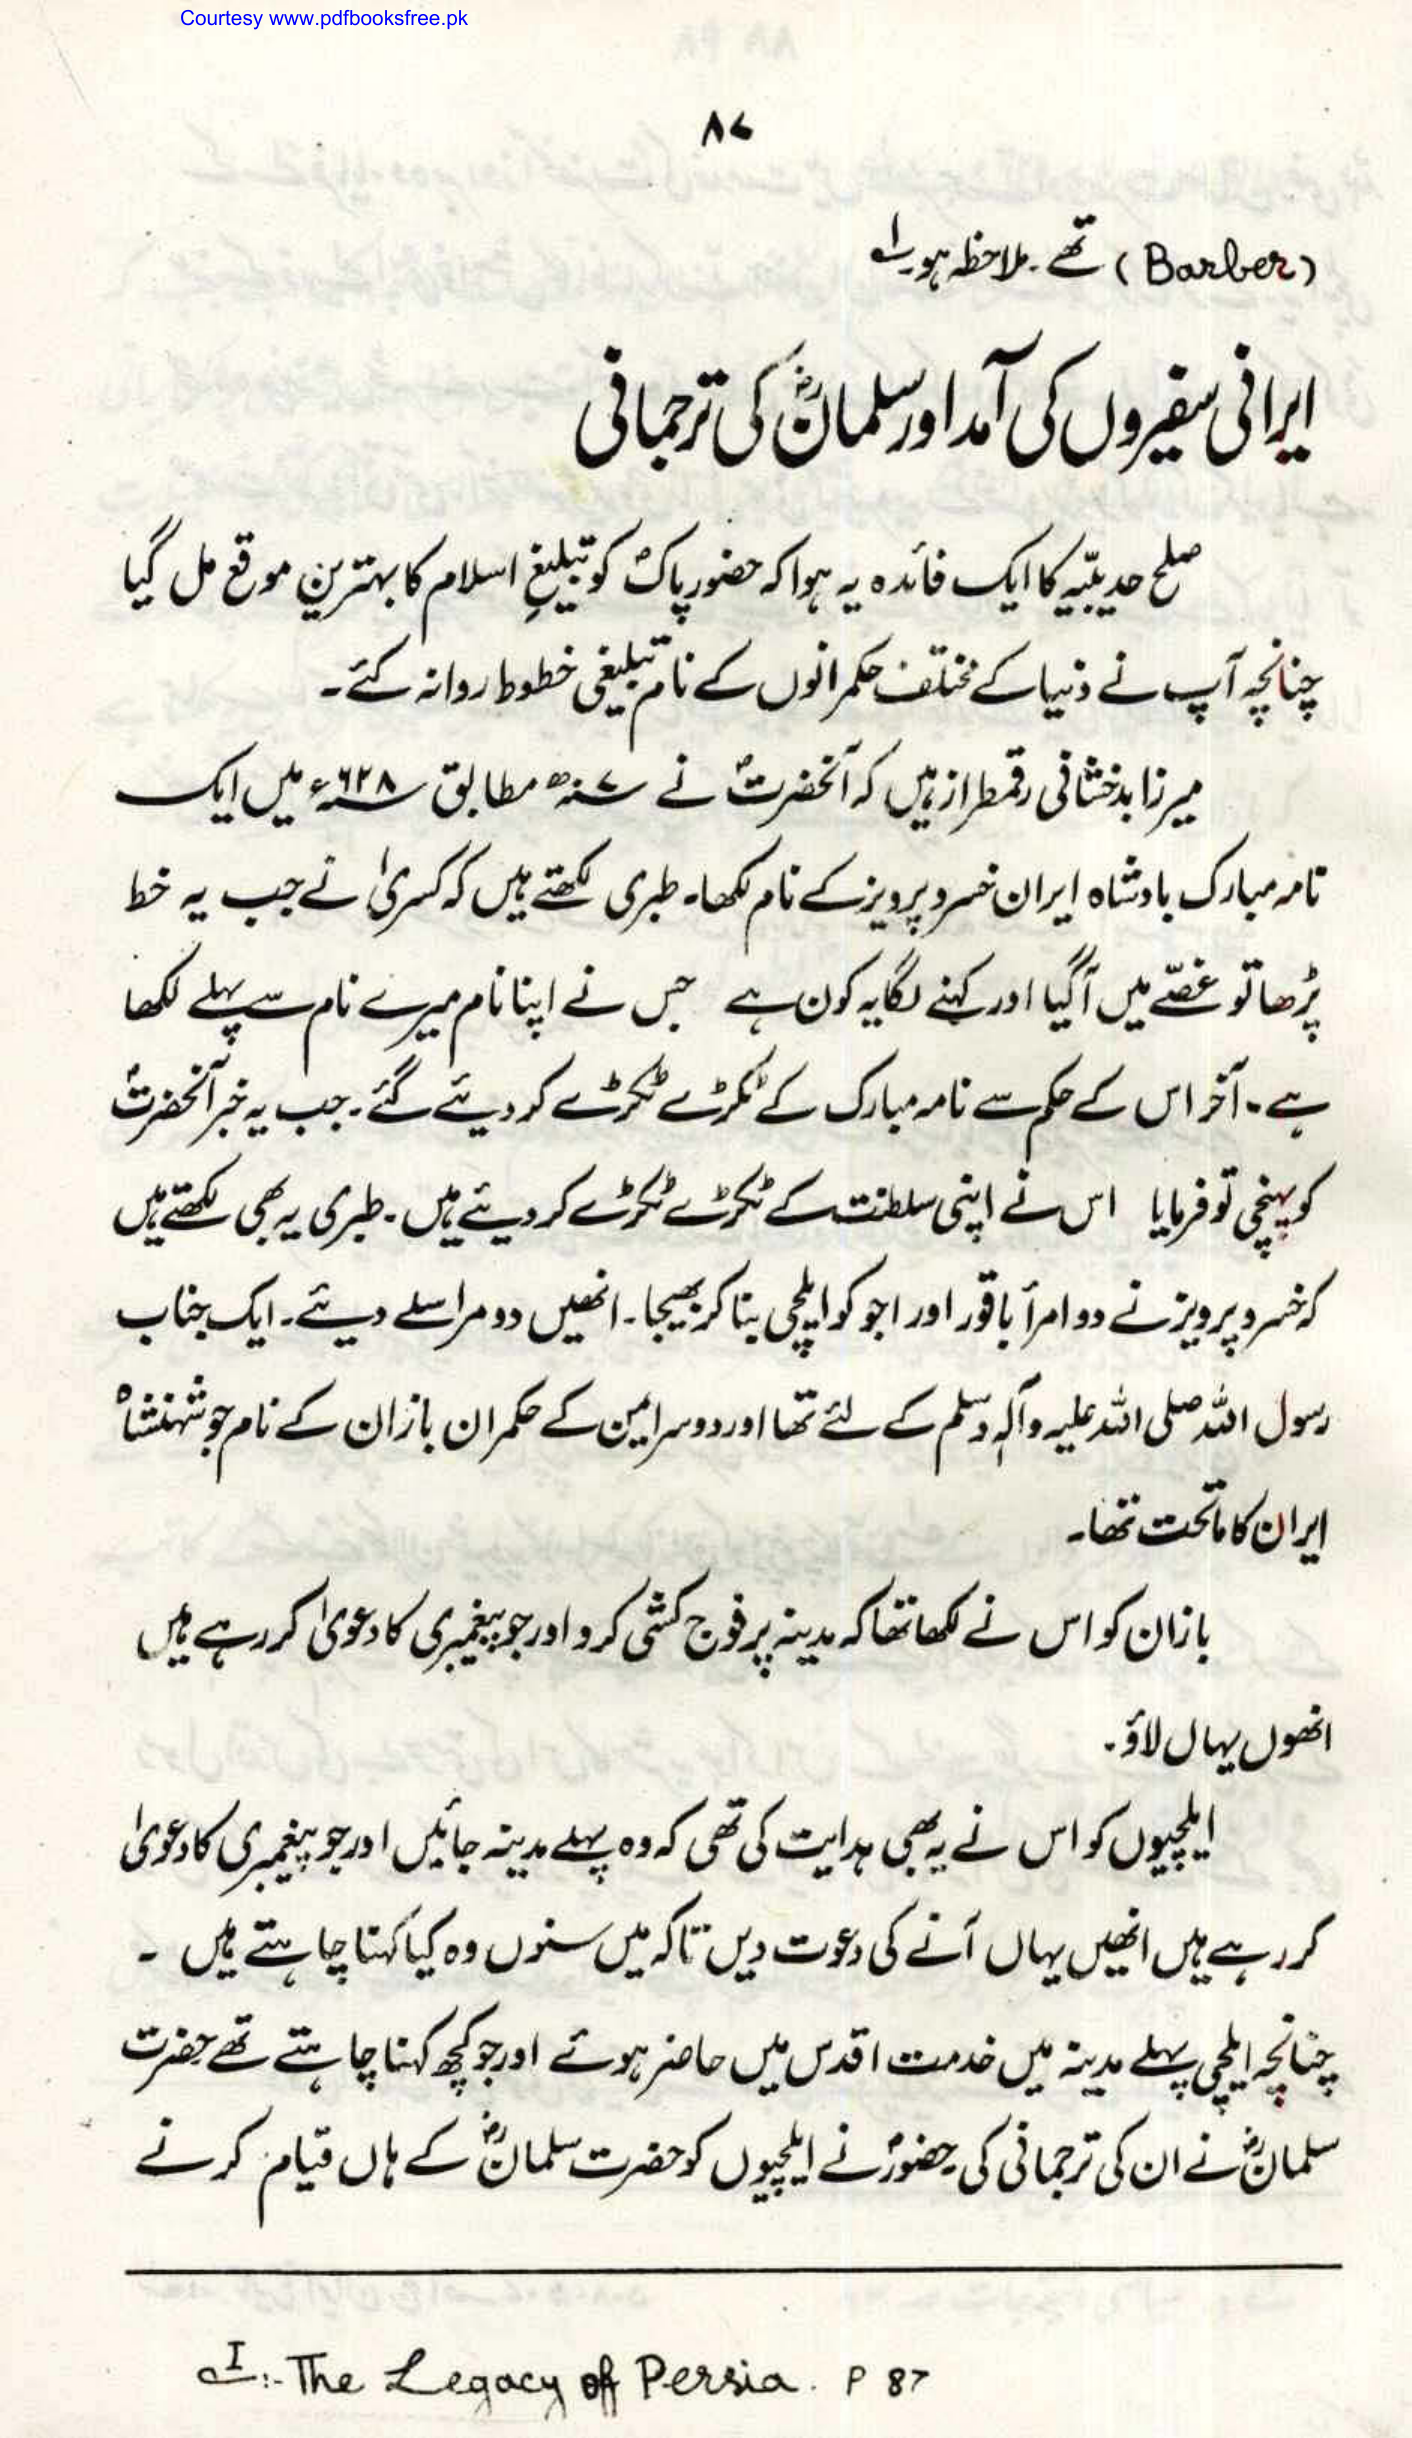 Courtesy www.pdfbooksfree.pk
۸۷
(Barber) تھے۔ ملاحظہ ہو۔ ۱؎
ایرانی سفیروں کی آمد اور سلمانؓ کی ترجمانی
صلح حدیبیّہ کا ایک فائدہ یہ ہوا کہ حضور پاکؐ کو تبلیغِ اسلام کا بہترین موقع مل گیا
چنانچہ آپ نے دنیا کے مختلف حکمرانوں کے نام تبلیغی خطوط روانہ کئے۔
میرزا بدخشانی رقمطراز ہیں کہ آنحضرتؐ نے ۷ سنہ ھ مطابق ۶۲۸ء میں ایک
نامہ مبارک بادشاہ ایران خسرو پرویز کے نام لکھا۔ طبری لکھتے ہیں کہ کسریٰ نے جب یہ خط
پڑھا تو غصّے میں آگیا اور کہنے لگا یہ کون ہے جس نے اپنا نام میرے نام سے پہلے لکھا
ہے۔ آخر اس کے حکم سے نامہ مبارک کے ٹکڑے ٹکڑے کر دیئے گئے۔ جب یہ خبر آنحضرتؐ
کو پہنچی تو فرمایا اس نے اپنی سلطنت کے ٹکڑے ٹکڑے کر دیئے ہیں۔ طبری یہ بھی لکھتے ہیں
کہ خسرو پرویز نے دو امرأ باقور اور اجو کو ایلچی بنا کر بھیجا۔ انھیں دو مراسلے دیئے۔ ایک جناب
رسول اللہ صلی اللہ علیہ وآلہٖ وسلم کے لئے تھا اور دوسرا یمن کے حکمران بازان کے نام جو شہنشاہ
ایران کا ماتحت تھا۔
بازان کو اس نے لکھا تھا کہ مدینہ پر فوج کشی کرو اور جو پیغمبری کا دعویٰ کر رہے ہیں
انھوں یہاں لاؤ۔
ایلچیوں کو اس نے یہ بھی ہدایت کی تھی کہ وہ پہلے مدینہ جائیں اور جو پیغمبری کا دعویٰ
کر رہے ہیں انھیں یہاں آنے کی دعوت دیں تاکہ میں سنوں وہ کیا کہنا چاہتے ہیں ۔
چنانچہ ایلچی پہلے مدینہ میں خدمت اقدس میں حاضر ہوئے اور جو کچھ کہنا چاہتے تھے حضرت
سلمانؓ نے ان کی ترجمانی کی۔ حضورؐ نے ایلچیوں کو حضرت سلمانؓ کے ہاں قیام کرنے
I؎:- The Legacy of Persia. P 87